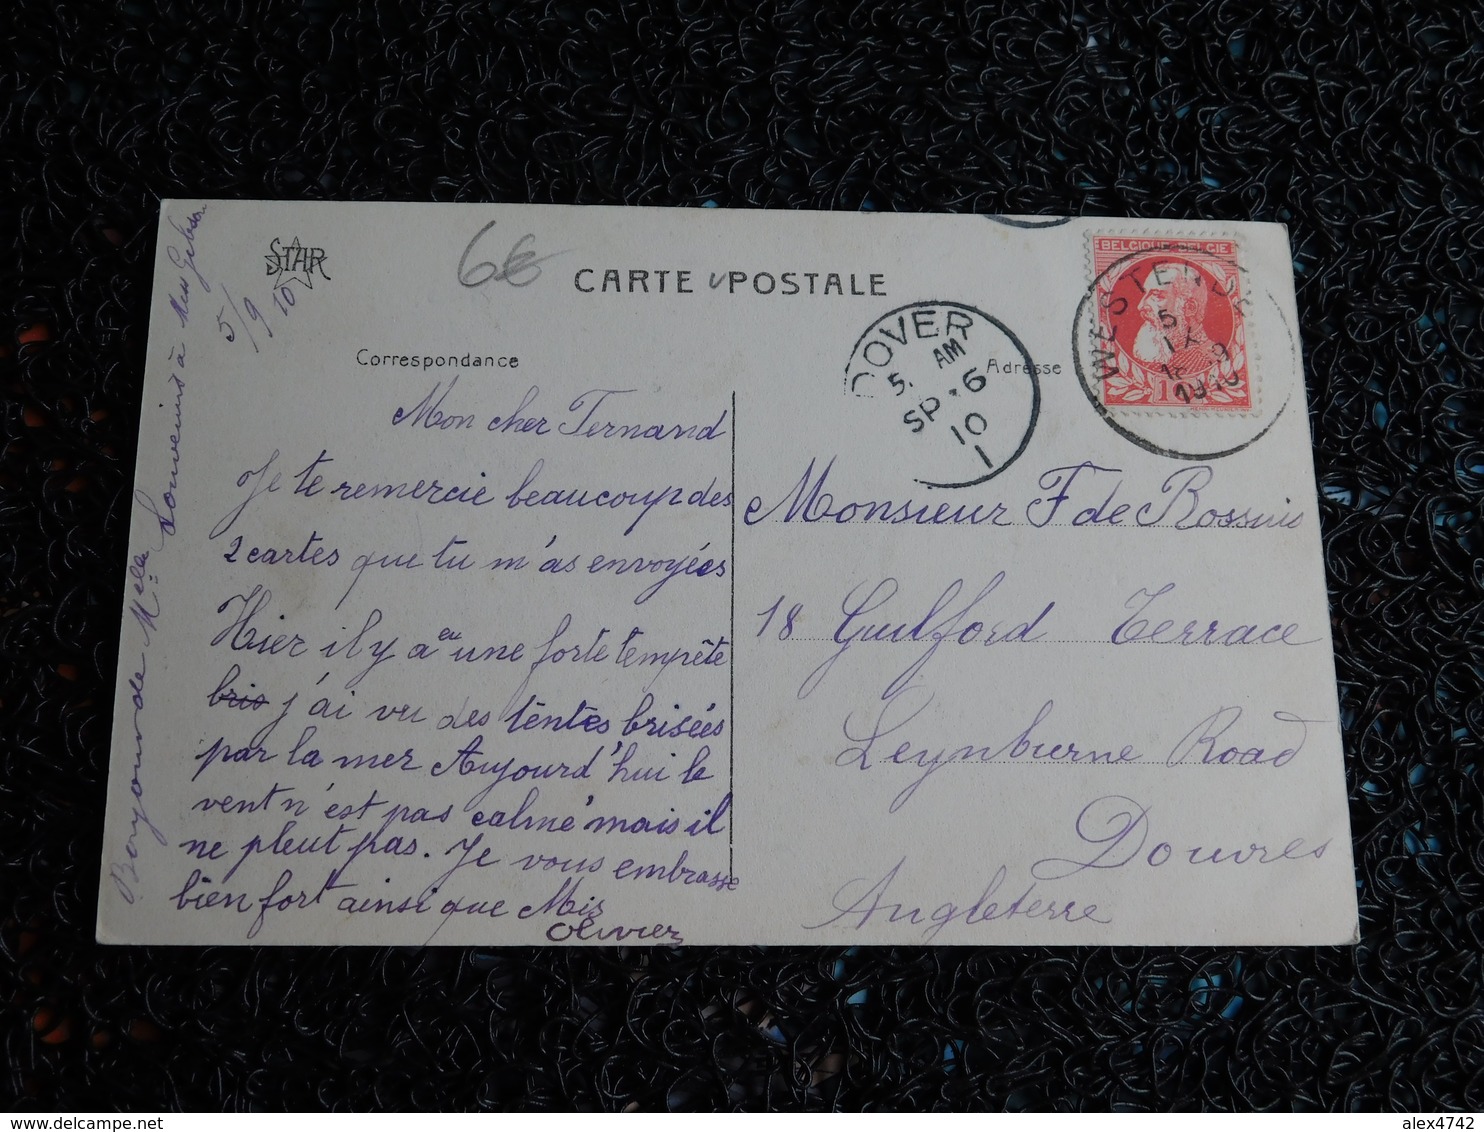 STAR
6€
CARTE POSTALE
5/9 10
Correspondance
Adresse
BELGIQUE BELGIE
WESTENDE
5
IX
1910
DOVER
5. AM
SP 6
10
1
Mon cher Fernand
Je te remercie beaucoup des
2 cartes que tu m'as envoyées
Hier il y a eu une forte tempête
bris j'ai vu des tentes brisées
par la mer Aujourd'hui le
vent n'est pas calme mais il
ne pleut pas. Je vous embrasse
bien fort ainsi que Mis
Olivier
Bonjour de Melle Souvenirs à Miss
Monsieur F de
18 Guilford Terrace
Leynburne Road
Douvres
Angleterre
delcampe.net
alex4742